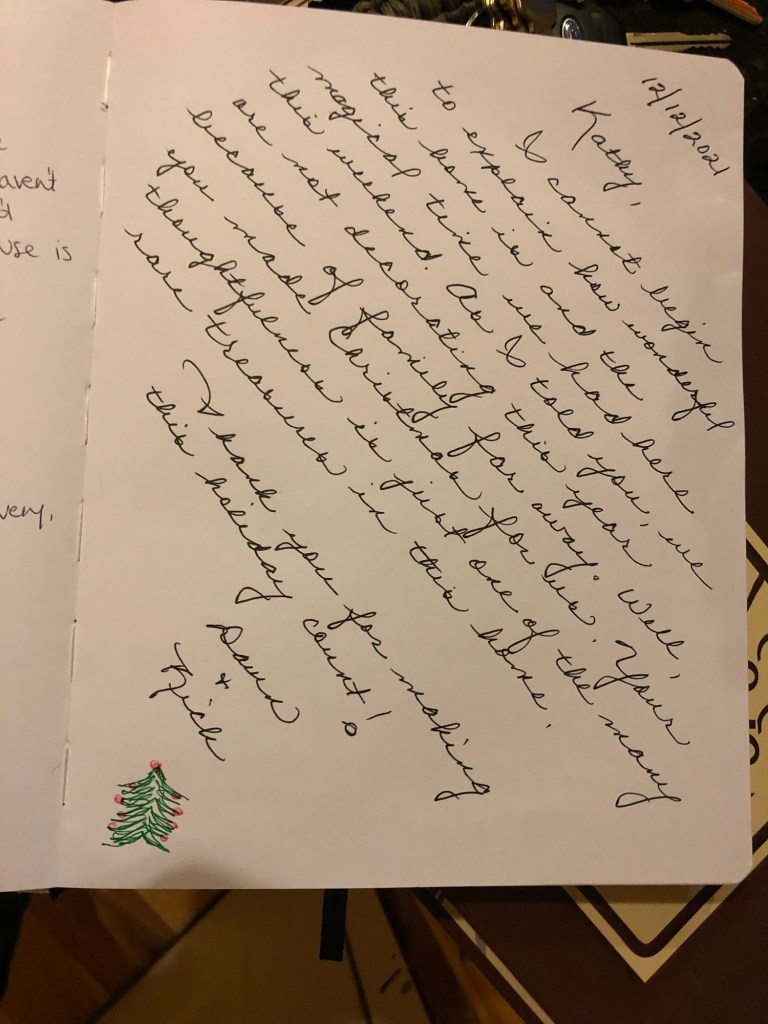 aven't
use is
very,
12/12/2021
Kathy,
I cannot begin
to explain how wonderful
this home is and the
magical time we had here
this weekend. As I told you, we
are not decorating this year
because of family far away. Well,
you made Christmas for us. Your
thoughtfulness is just one of the many
rare treasures in this home.
Thank you for making
this holiday count!
Dawn
+
Rick